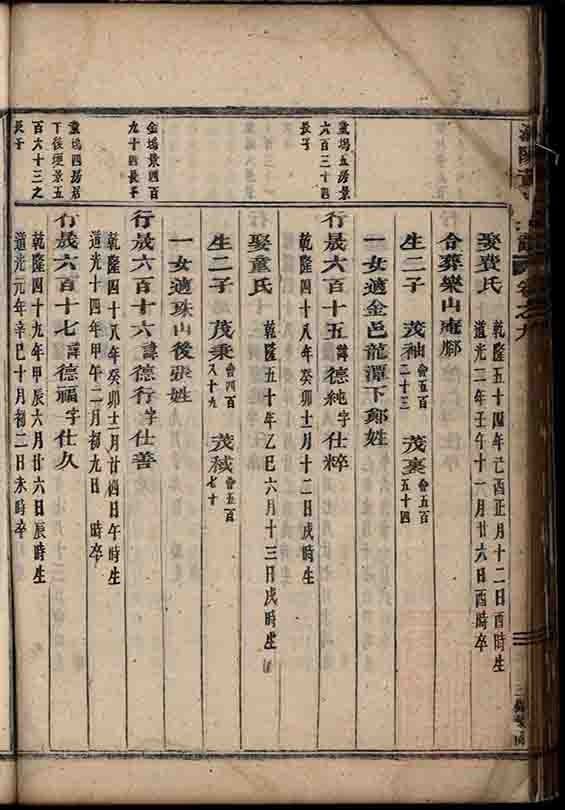 卷之九
娶费氏
乾隆五十四年己酉正月十二日酉時生
道光二年壬午十一月廿六日酉時卒
合葬樂山庵腳
生二子 茂袖 會五百二十三 茂裏 會五百五十四
一女適金邑龍潭下鄭姓
童塢五房居景
六百三十四
長子
行晟六百十五諱德純字仕粹
乾隆四十八年癸卯士月十二日戌時生
娶童氏
乾隆五十年乙巳六月十三日戌時生
生二子 茂秉 會四百八十九 茂棫 會五百七十
一女適珠山後張姓
金塢景四百
九十四長子
行晟六百十六諱德行字仕善
乾隆四十八年癸卯士月廿四日午時生
道光十四年甲午二月初九日 時卒
童塢四房居
下後堰景五
百六十三之
長子
行晟六百十七諱德福字仕久
乾隆四十九年甲辰六月廿六日辰時生
道光元年辛巳十月初二日未時卒